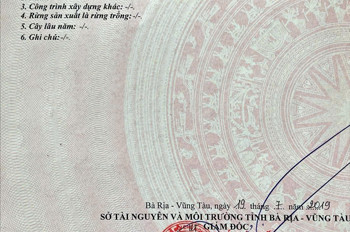 3. Công trình xây dựng khác: -/-.
4. Rừng sản xuất là rừng trồng: -/-.
5. Cây lâu năm: -/-.
6. Ghi chú: -/-.
Bà Rịa - Vũng Tàu, ngày 19 tháng 7 năm 2019
SỞ TÀI NGUYÊN VÀ MÔI TRƯỜNG TỈNH BÀ RỊA - VŨNG TÀU
GIÁM ĐỐC